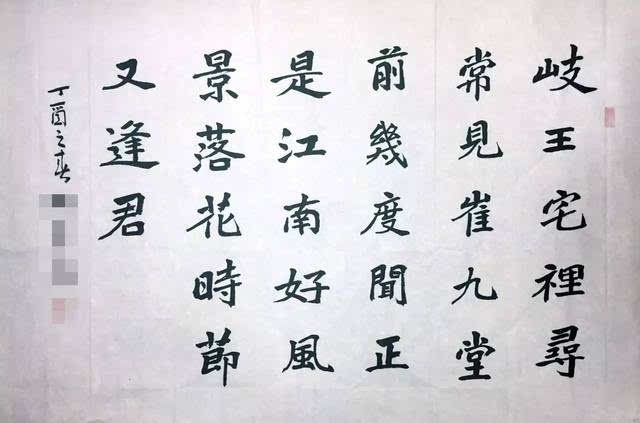 岐王宅裡尋
常見崔九堂
前幾度聞正
是江南好風
景落花時節
又逢君
丁酉之春